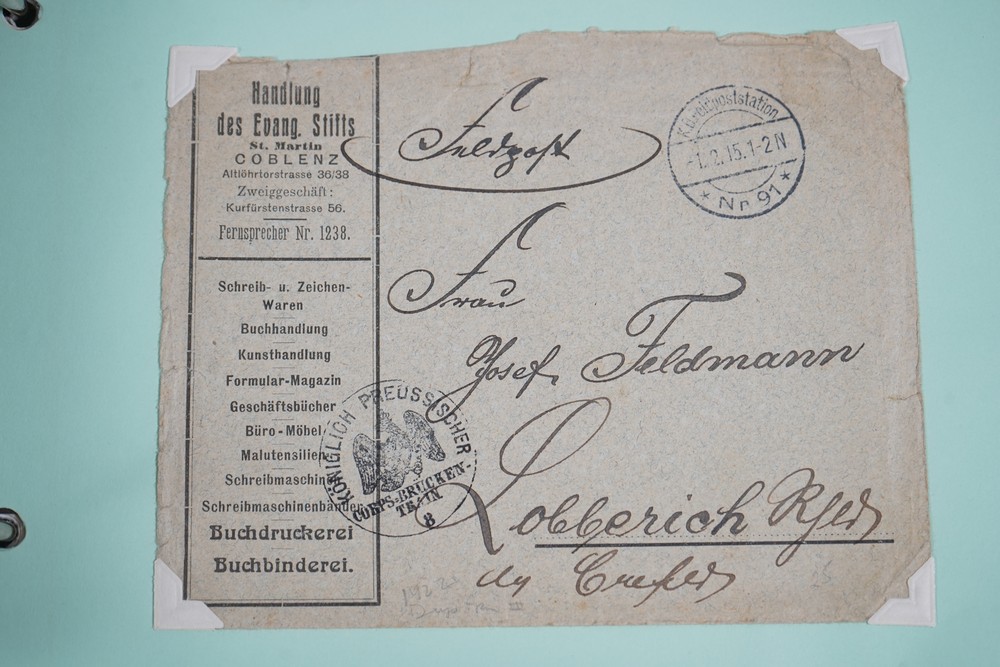 Handlung
des Evang. Stifts
St. Martin
COBLENZ
Altlöhrtorstrasse 36/38
Zweiggeschäft:
Kurfürstenstrasse 56.
Fernsprecher Nr. 1238.
Schreib- u. Zeichen-
Waren
Buchhandlung
Kunsthandlung
Formular-Magazin
Geschäftsbücher
Büro-Möbel
Malutensilien
Schreibmaschinen
Schreibmaschinenbänder
Buchdruckerei
Buchbinderei.
Feldpost
K.D.Feldpoststation
-1.2.15.1-2N
* Nr. 91 *
Frau
Josef Feldmann
Lobberich Rhld
Crefeld
KÖNIGLICH PREUSSISCHER
CORPS-BRÜCKEN-
TRAIN
8